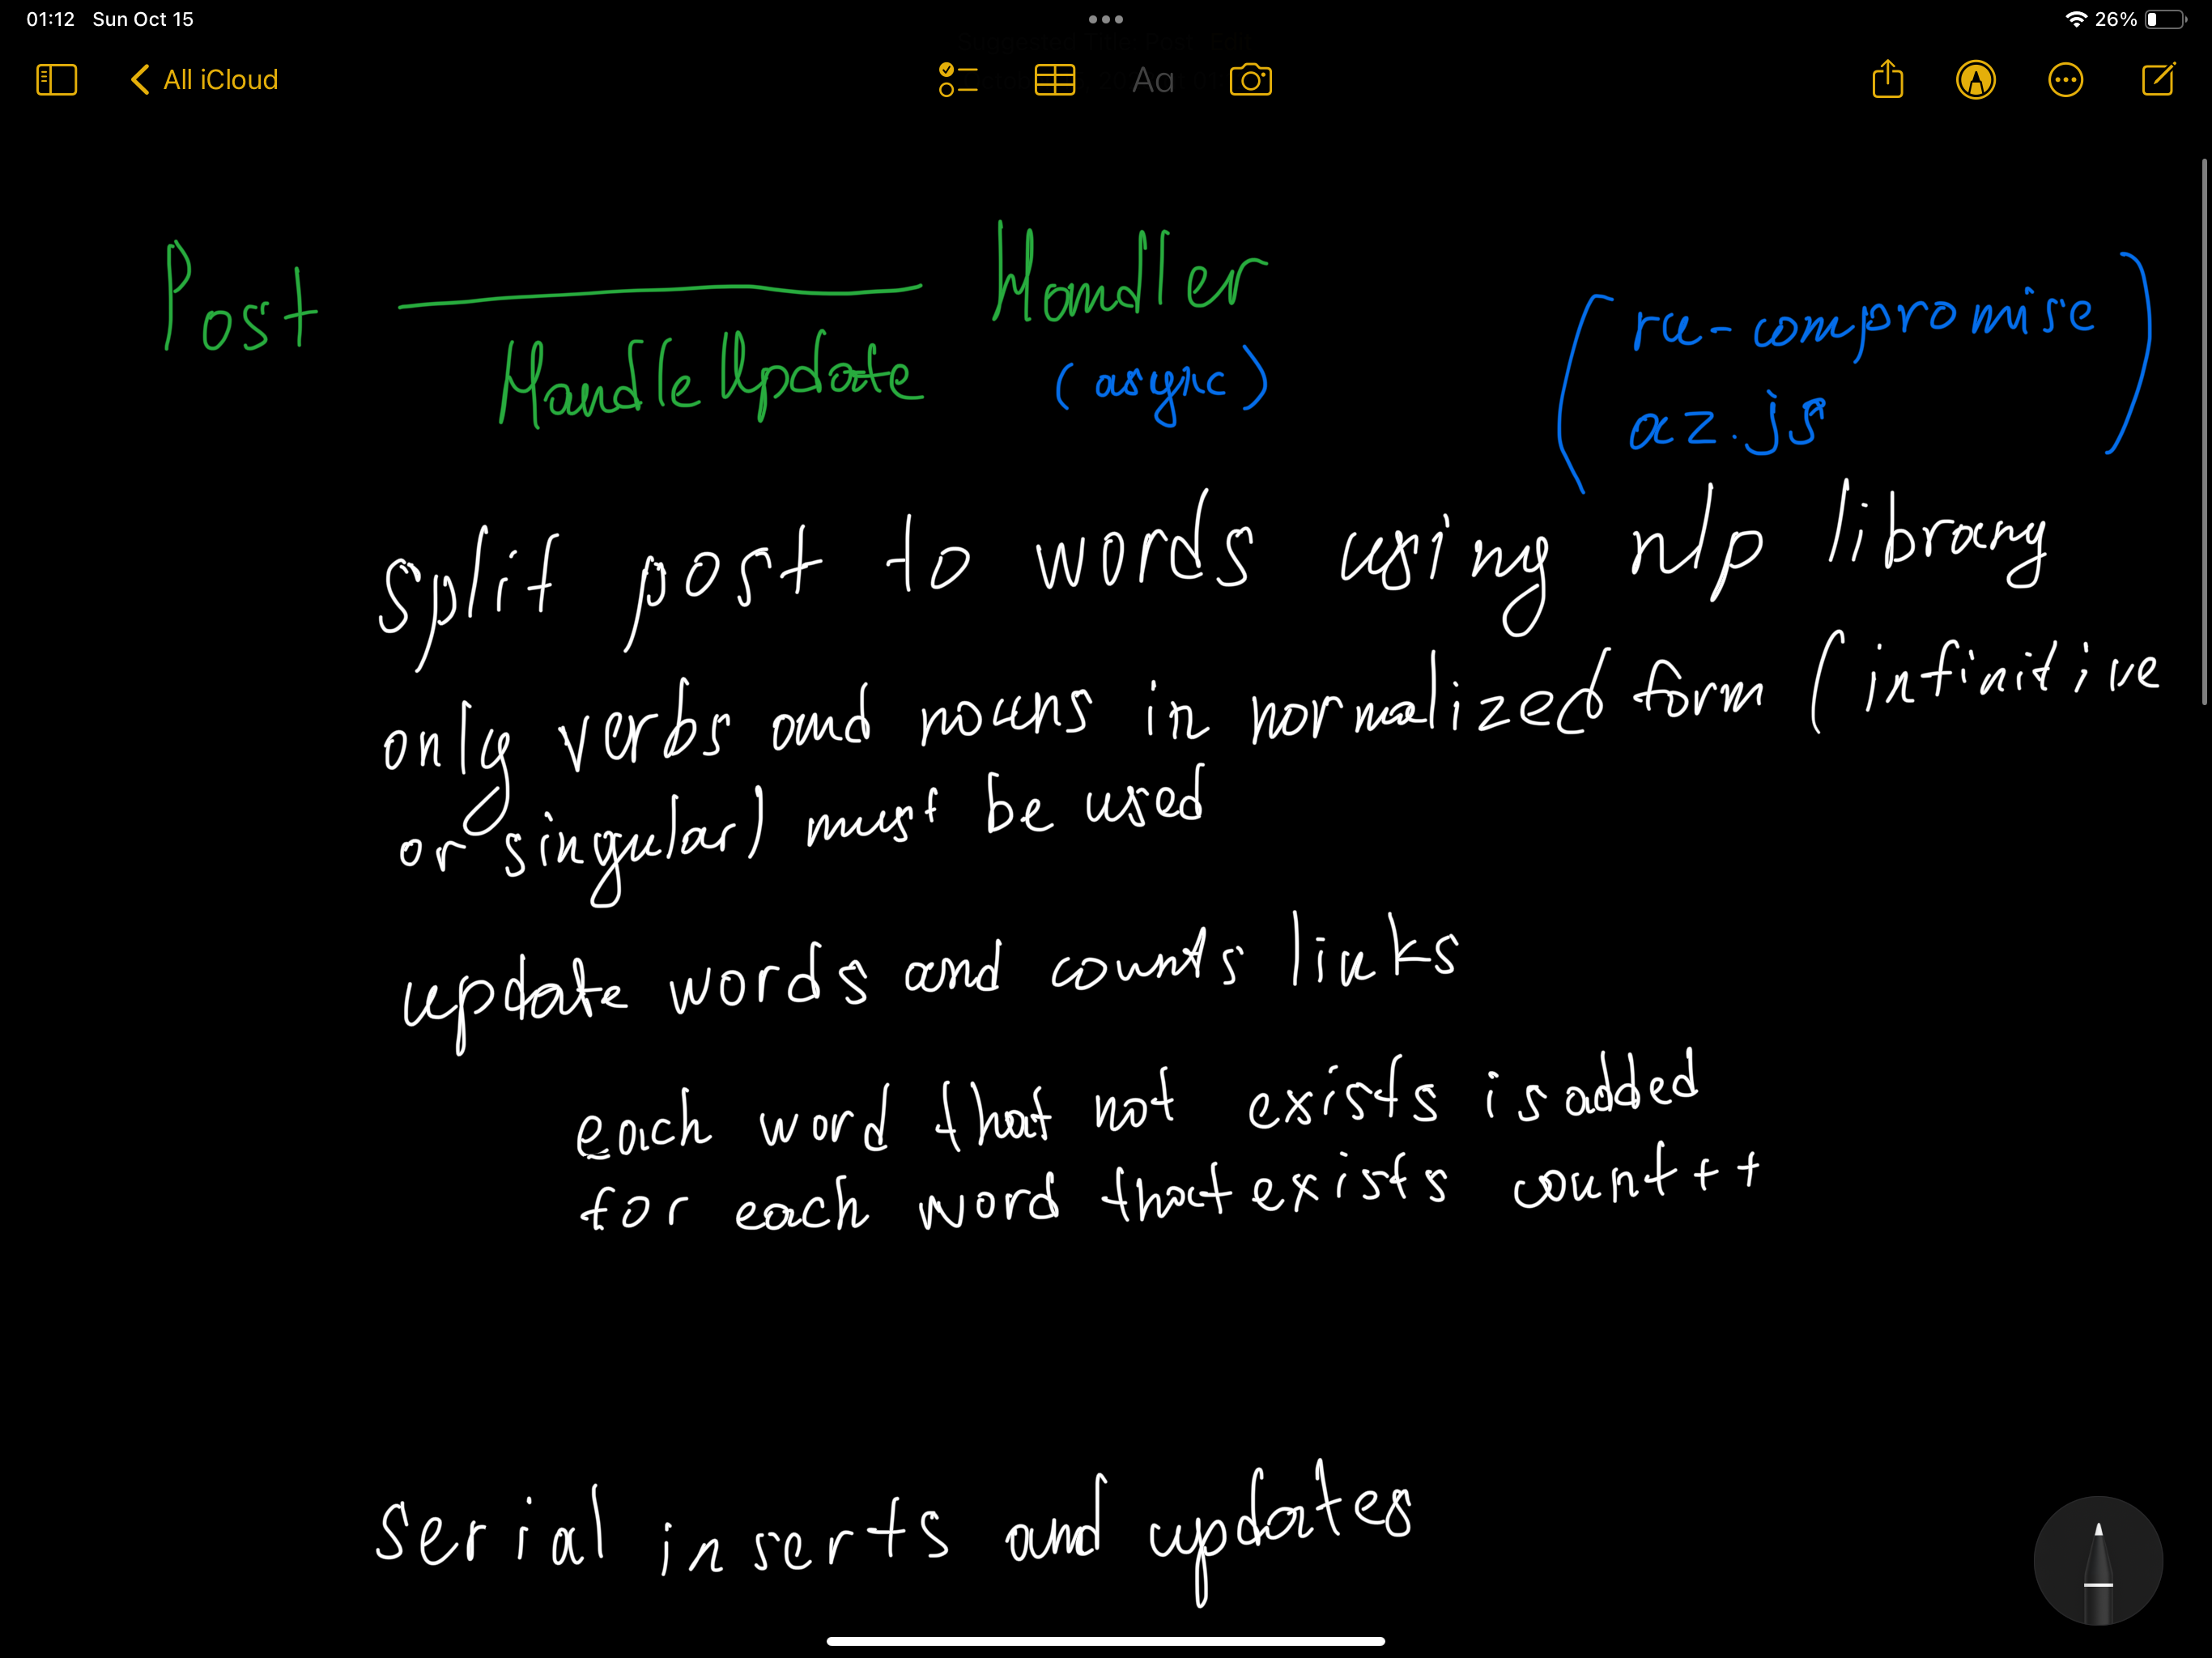 01:12 Sun Oct 15
26%
All iCloud
Aa
Post Handler
HandleUpdate (async)
(ru-compromise
az.js)
split post to words using nlp library
only verbs and nouns in normalized form (infinitive
or singular) must be used
update words and counts links
each word that not exists is added
for each word that exists count++
serial inserts and updates